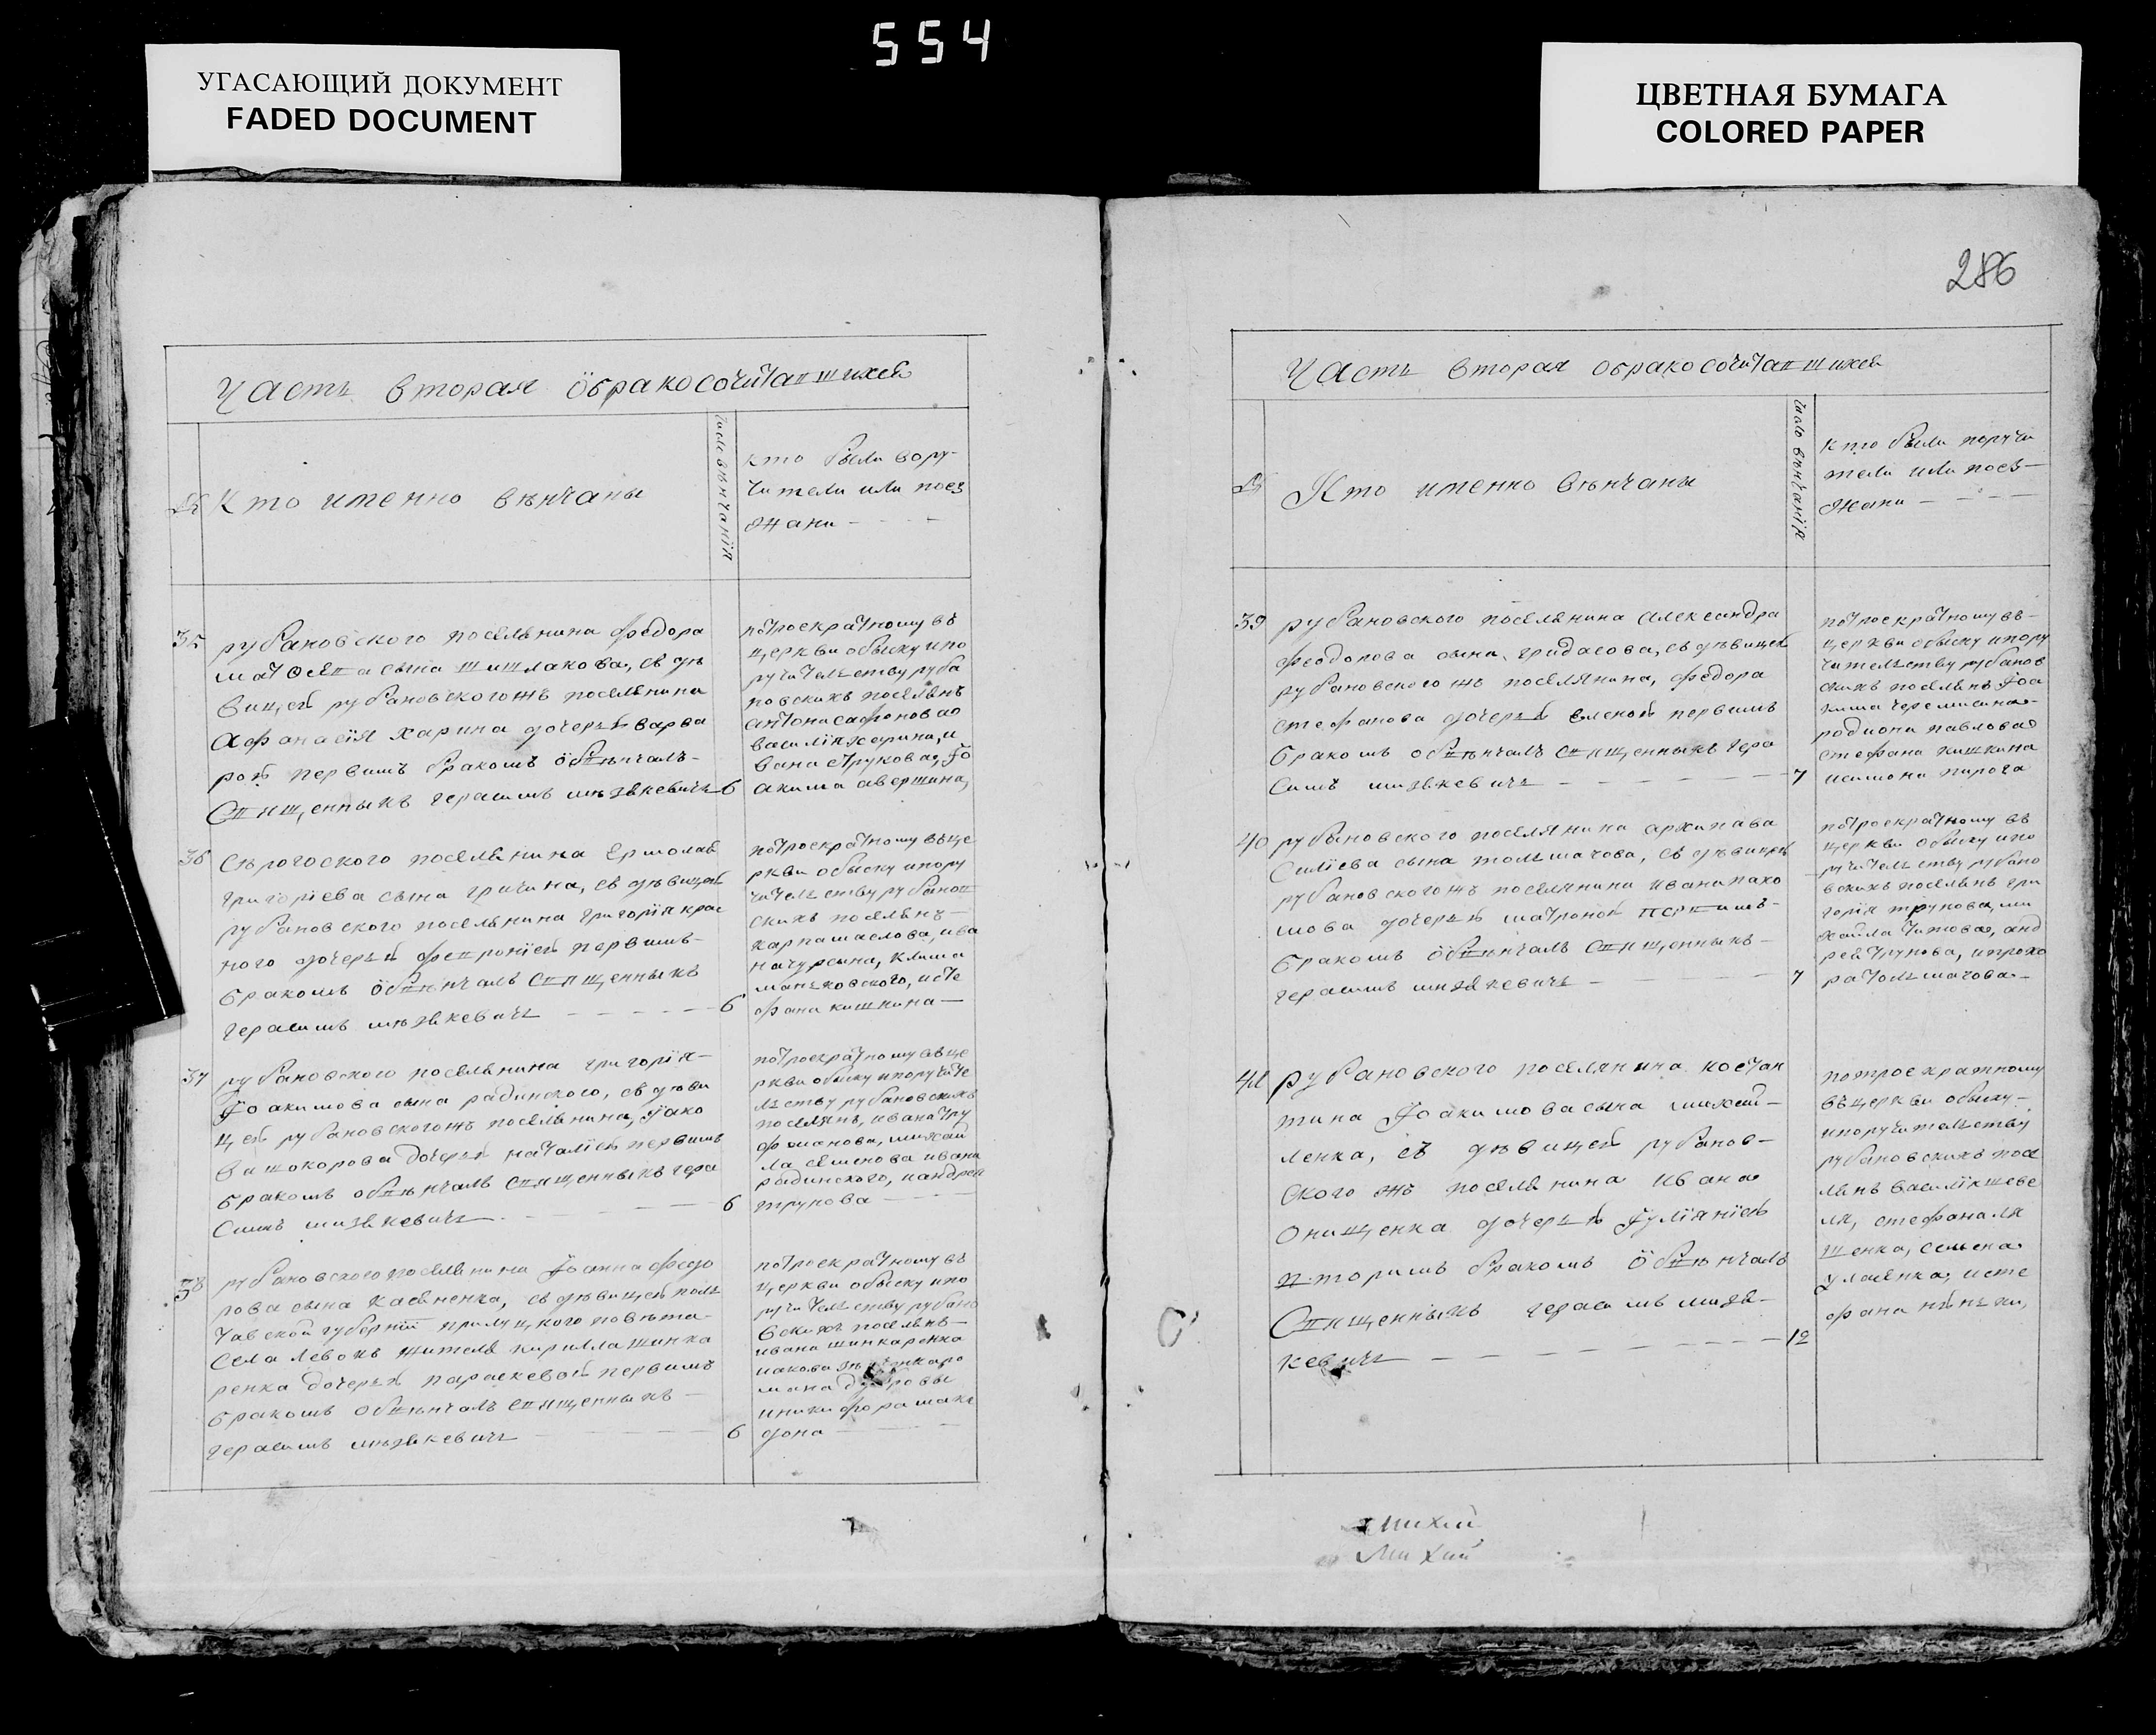 554
УГАСАЮЩИЙ ДОКУМЕНТ
FADED DOCUMENT
ЦВЕТНАЯ БУМАГА
COLORED PAPER
Часть вторая ѻбракосочитавшихся
№
Кто именно вѣнчаны
число вѣнчанїя
кто были пору-
чители или поез
жани -
35
рубановского поселянина федора
матѳеева сына шишлакова, съ дѣ
вицей рубановскогожъ поселянина
Афанасїя харина дочерью варва
рой первимъ бракомъ ѻбвѣнчалъ-
Священникъ герасимъ
6
потроекратному въ
церкви обыску ипо
ручительству руба
новскихъ поселянъ
антона сафонова
василїя харина, и
вана струкова, Іо
акима авершина,
36
Сѣрогоского поселянина Ермолая
григорїева сына гричина, съ дѣвицей
рубановского поселянина григорїя крас
ного дочерью февронїей первимъ-
бракомъ ѻбвѣнчалъ священникъ
герасимъ
6
потроекратному въ це
ркви обыску ипору
чительству рубанов
скихъ поселянъ-
карпа маслова, ива
на чурсина, клима
маньковского, исте
фана кишкина-
37
рубановского поселянина григорїя-
Іоакимова сына радинского, съ дѣви
цей рубановскогожъ поселянина, Іако
ва шокорова дочерью наталїей первимъ
бракомъ обвѣнчалъ священникъ гера
симъ
6
потроекратному въ це
ркви обыску ипоручите
льству рубановскихъ
поселянъ, ивана тру
фманова, михай
ла семенова ивана
радинского, иандрея
трунова
38
рубановского поселянина Іоанна федо
рова сына касяненка, съ дѣвицей полт
тавской губернїи прилуцкого повѣта-
Села левокъ жителя кирилла шинка
ренка дочерью параскевой первимъ
бракомъ обвѣнчалъ священникъ-
герасимъ
6
потроекратному въ
церкви обыску ипо
ручительству рубано
вскихъ поселянъ-
ивана шинкаренка
иакова
мана
иникифора мака
дона
286
Часть вторая обракосочитавшихся
№
Кто именно вѣнчаны
число вѣнчанїя
кто были поручи
тели или поез-
жани -
39
рубановского поселянина Александра
феодорова сына, гридасова, съ дѣвицей
рубановскогожъ поселянина, федора
стефанова дочерью еленой первимъ
бракомъ обвѣнчалъ священникъ гера
симъ
7
потроекратному въ-
церкви обыску ипору
чительству рубанов
скихъ поселянъ Іоа
кима черемисина-
родиона павлова
стефана кишкина
исимона пирога
40
рубановского поселянина архипа ва
силїева сына толмачова, съ дѣвицей
рубановскогожъ поселянина ивана пахо
мова дочерью матроной первимъ-
бракомъ ѻбвѣнчалъ священникъ-
герасимъ
7
потроекратному въ
церкви обыску ипо
ручительству рубано
вскихъ поселянъ гри
горїя трунова, ми
хайла титова, анд
рея трунова, ипрохо
ра толмачова-
41
рубановского поселянина костан
тина Іоакимова сына михай-
ленка, съ дѣвицей рубанов-
ского жъ поселянина ивана
онищенка дочерью Іулїянїей
вторимъ бракомъ ѻбвѣнчалъ
Священникъ герасимъ
12
потроекратному
въ церкви обыску-
ипоручительству
рубановскихъ посе
лянъ василїя шеве
ля, стефана ля
шенка, семена
уласенка, исте
фана
Михай
Михай